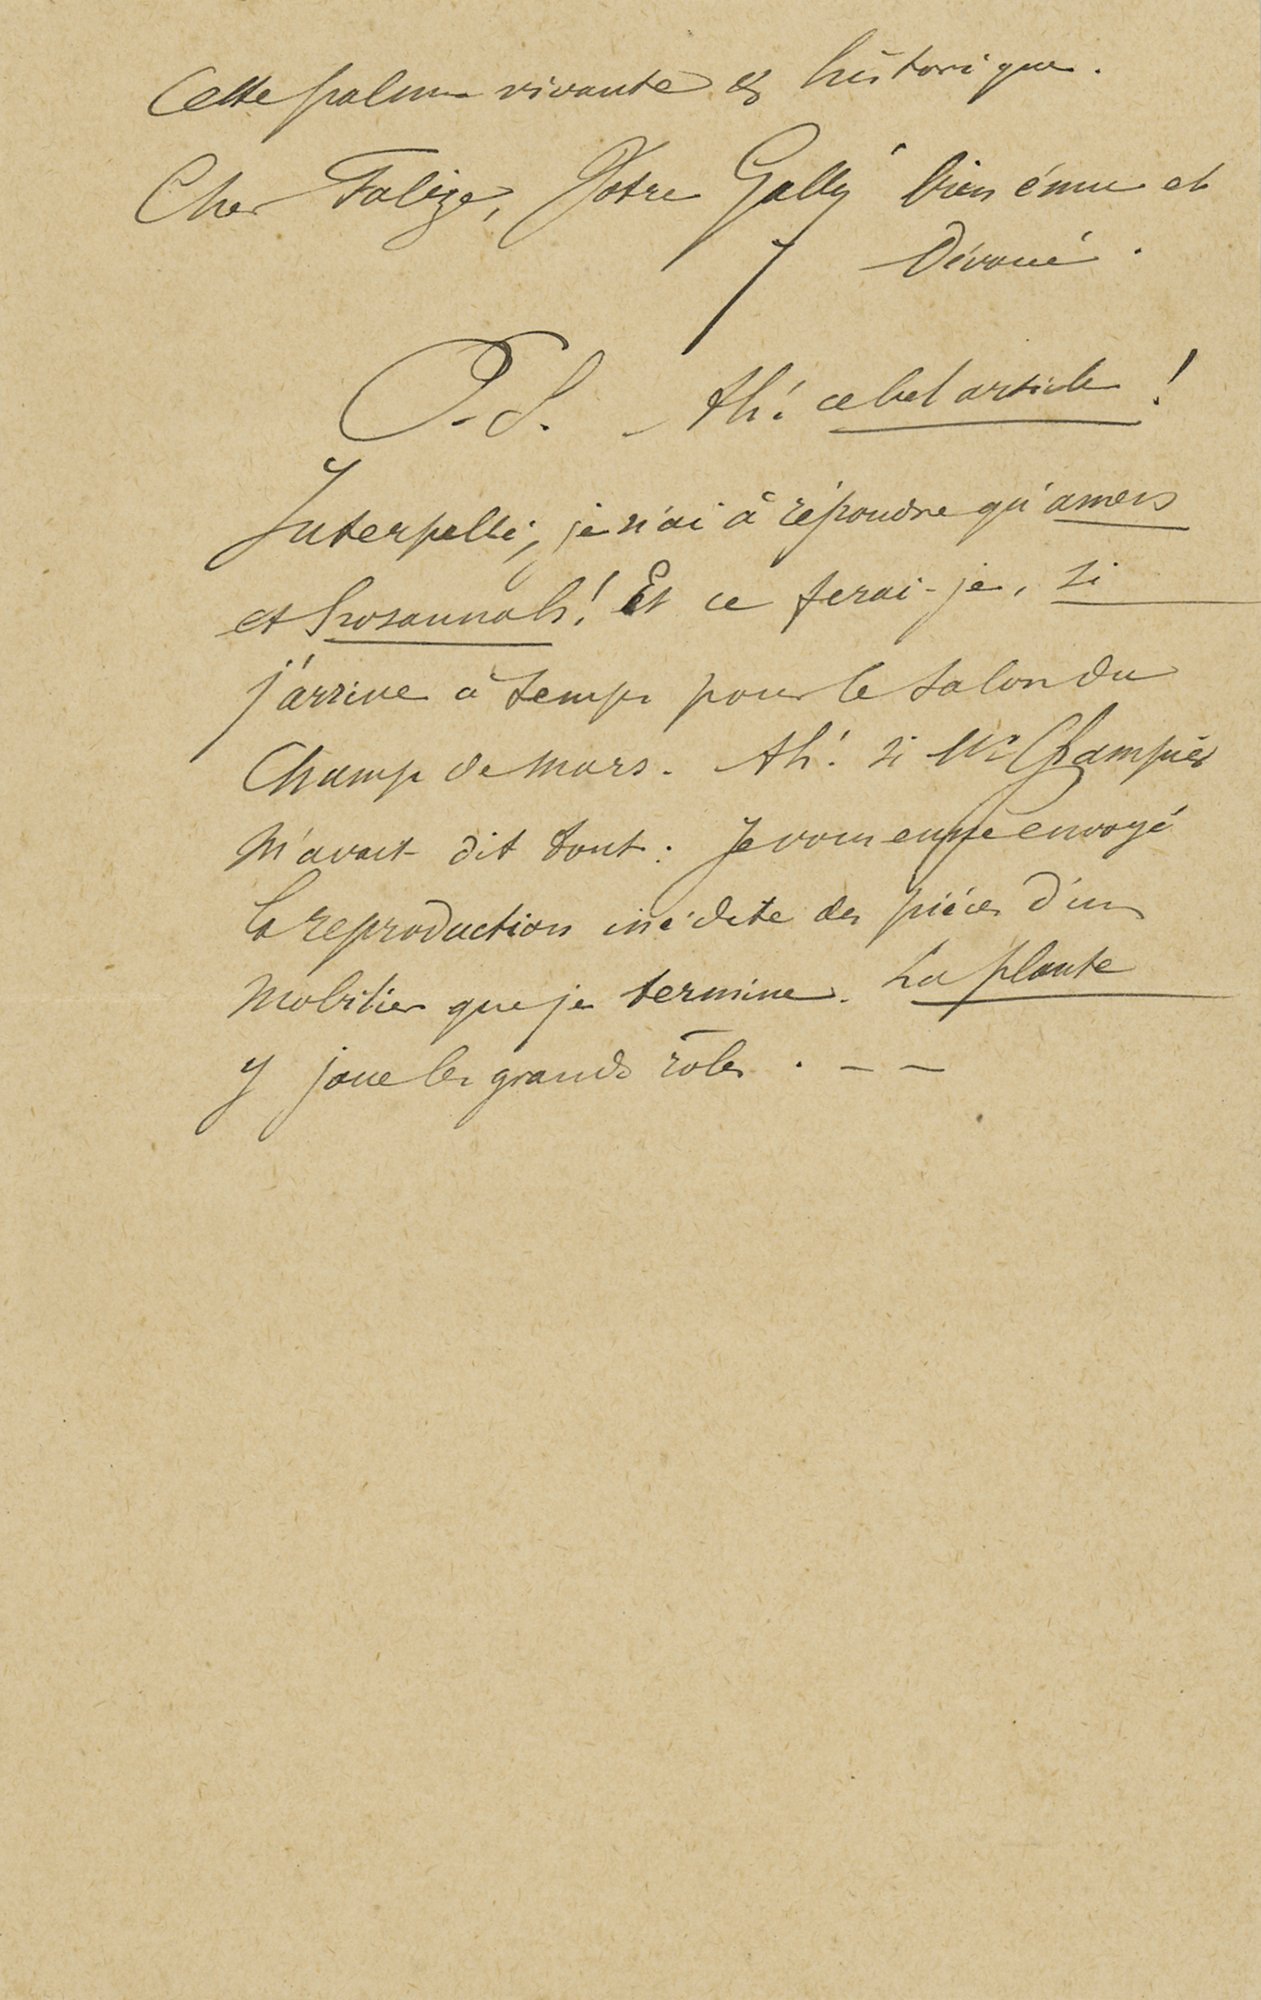 Cette palme vivante & historique.
Cher Falize, Votre Gallé bien ému et
Dévoué.
P.S. - Ah! ce bel article!
Interpellé, je n'ai à répondre qu'amens
et hosannahs! Et ce ferai-je, si
j'arrive à temps pour le salon du
Champ de mars. Ah! si Mr Champier
m'avait dit tout: Je vous eusse envoyé
la reproduction inédite des pièces d'un
Mobilier que je termine. La plante
y joue les grands rôles . - -